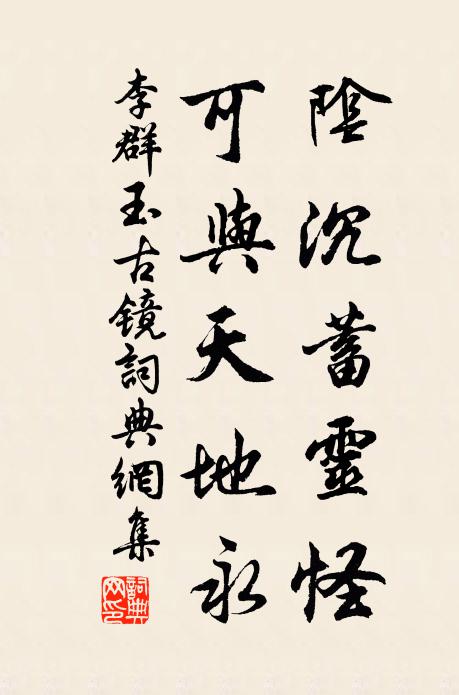 陰沉蓄靈怪
可與天地永
李群玉古镜詞典網集
詞典網印